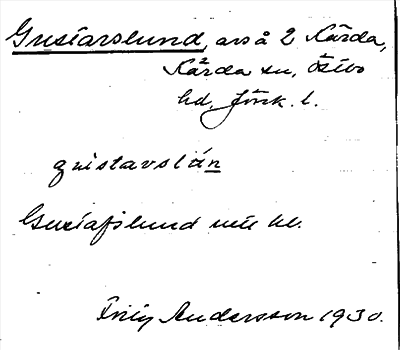 Gustavslund, avs å 2 Kärda,
Kärda sn, Östbo
hd, Jönk. l.
gustavslun
Gustafslund mtl kl.
Andersson 1930.